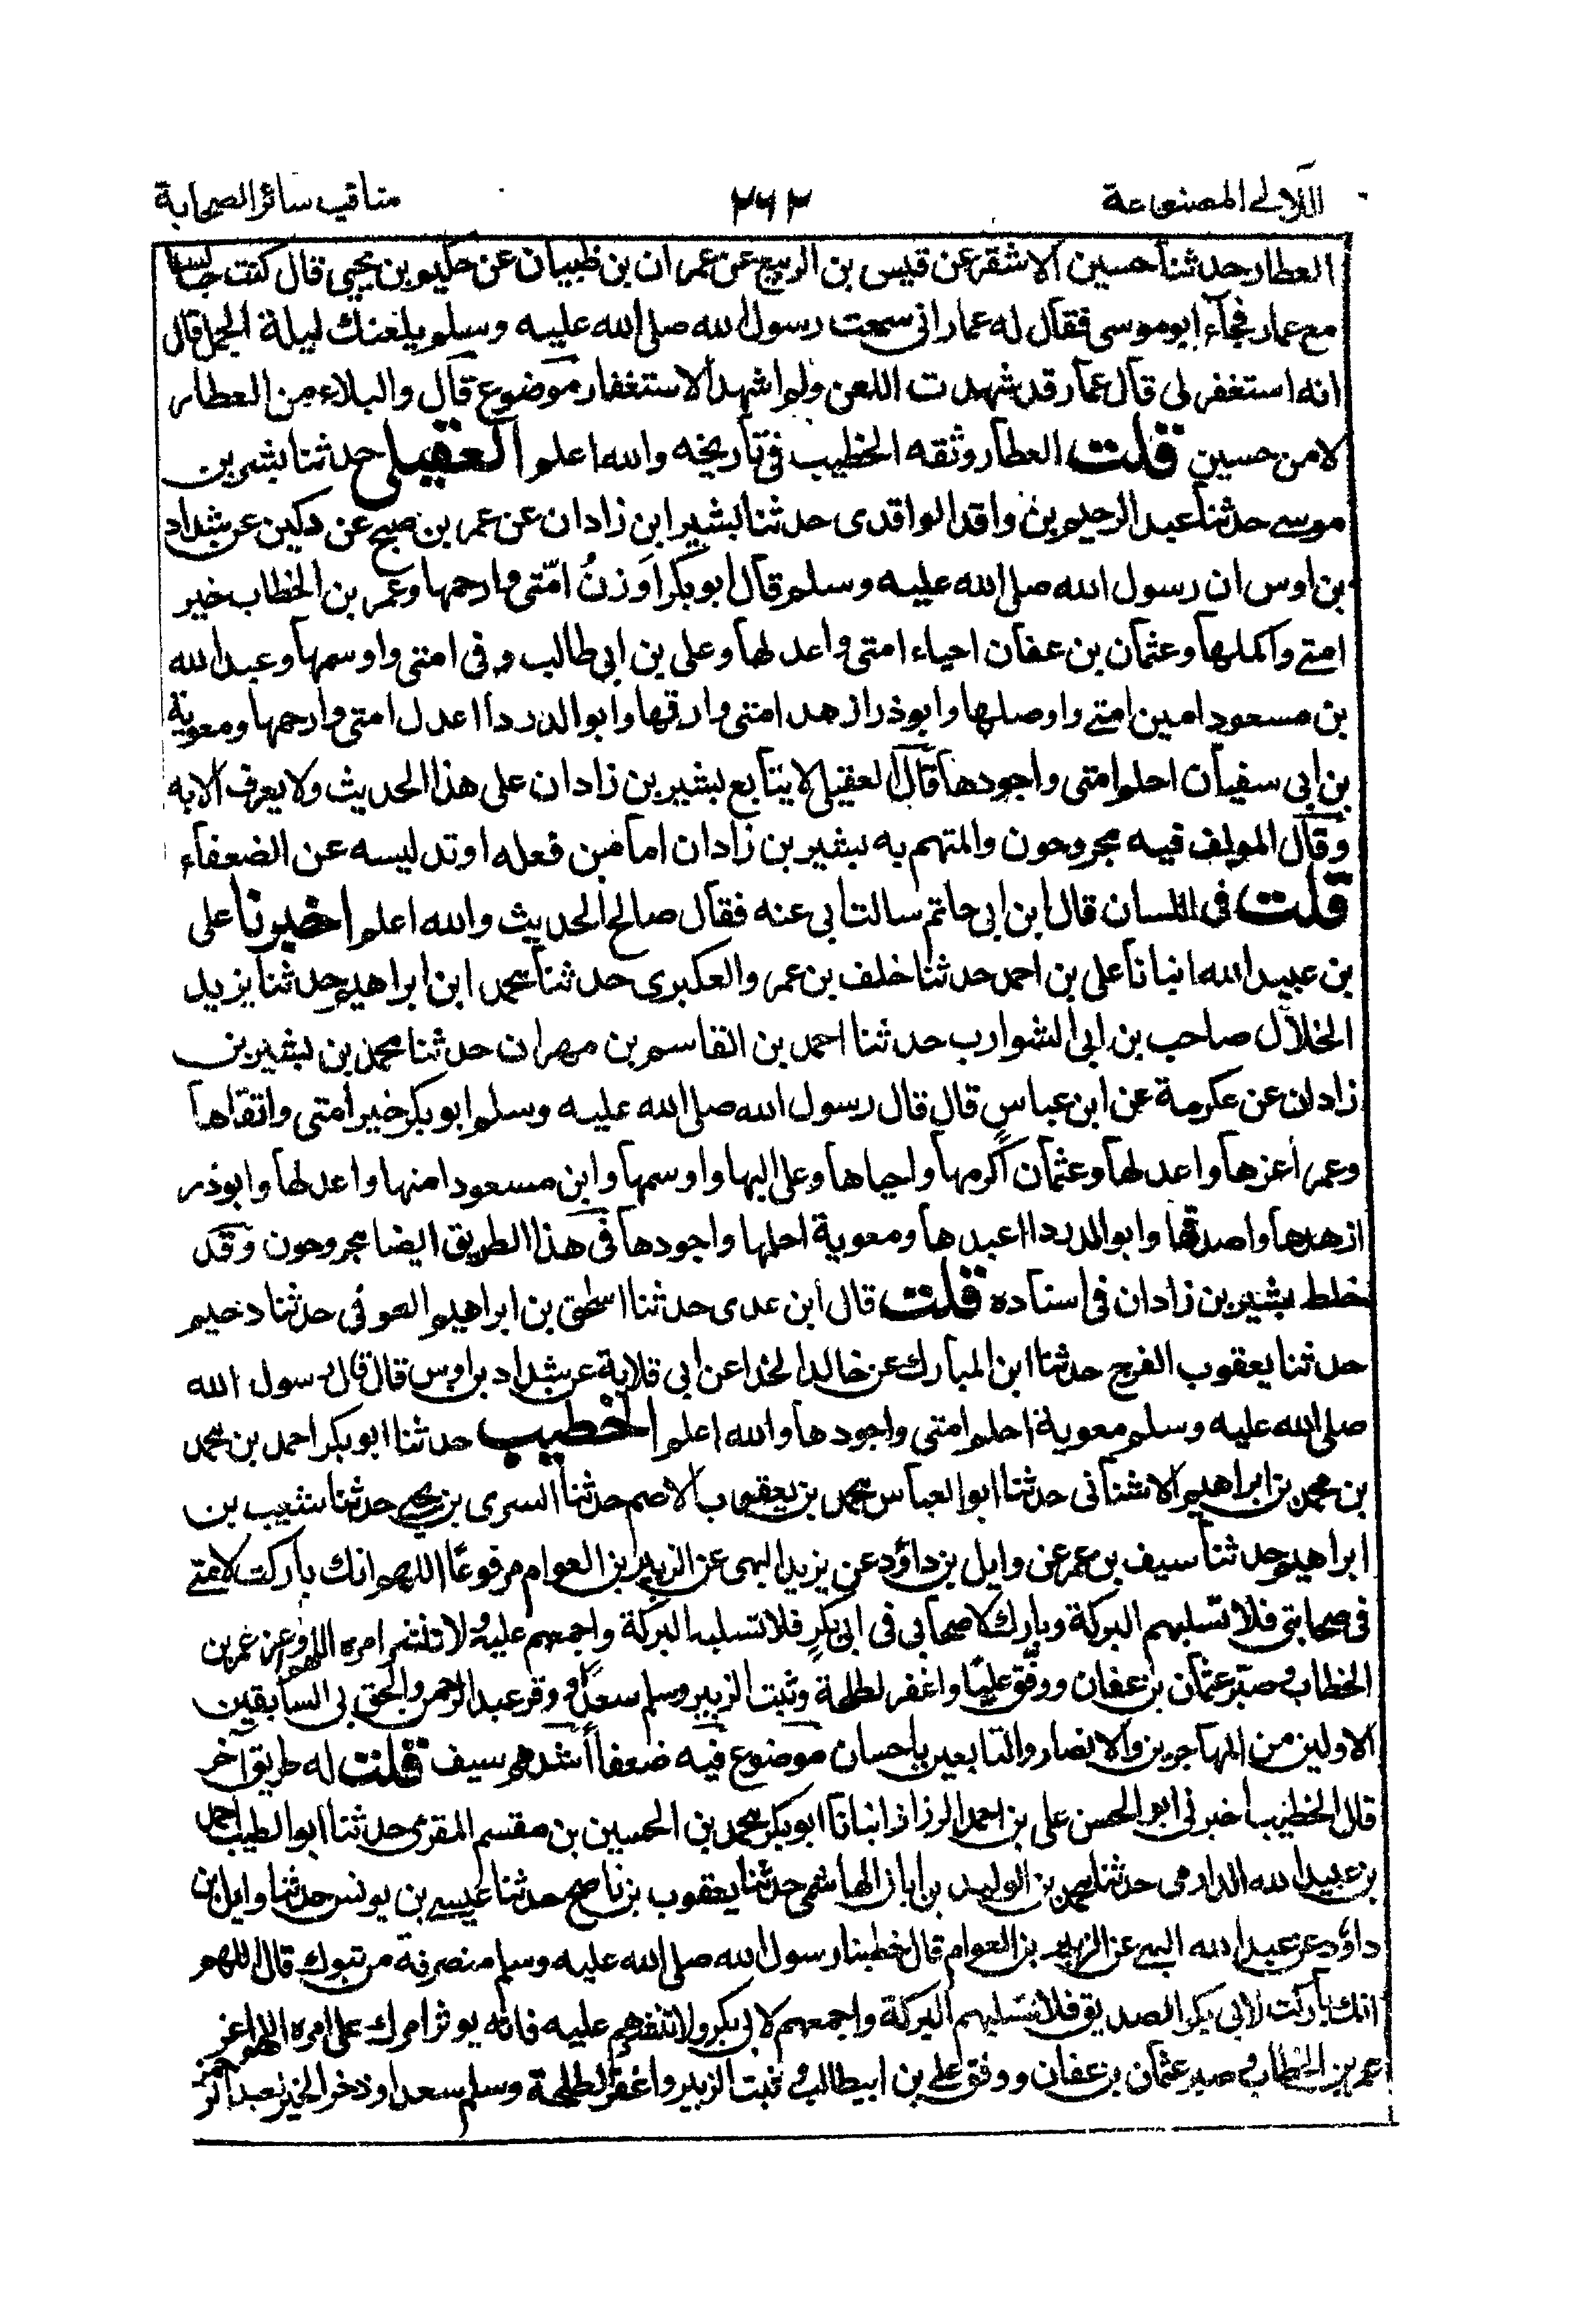 اللآلى المصنوعة
٢٦٢
مناقب سائر الصحابة
العطار حدثنا حسين الاشقر عن قيس بن الربيع عن عمران بن ظبيان عن حكيم بن يحيى قال كنت جالسا
مع عمار فجآء ابو موسى فقال له عمار انى سمعت رسول الله صلى الله عليه وسلم يلعنك ليلة الجمل قال
انه استغفر لى قال عمار قد شهدت اللعن ولم اشهد الاستغفار موضوع قال والبلاء من العطار
لا من حسين قلت العطار وثقه الخطيب فى تاريخه والله اعلم العقيلى حدثنا بشر بن
موسى حدثنا عبد الرحيم بن واقد الواقدى حدثنا بشير ابن زادان عن عمر بن صبح عن دكين عن شداد
بن اوس ان رسول الله صلى الله عليه وسلم قال ابو بكر اَوزنُ امّتى وارحمها وعمر بن الخطاب خير
امتى واكملها وعثمان بن عفان احياء امتى واعدلها وعلى بن ابى طالب وفى امتى واوسمها وعبد الله
بن مسعود امين امتى واوصلها وابوذر ازهد امتى وارقها وابو الدردا اعدل امتى وارحمها ومعوية
بن ابى سفيان احلم امتى واجودها قال العقيلى لا يتابع بشير بن زادان على هذا الحديث ولا يعرف الا به
وقال المولف فيه مجروحون والمتهم به بشير بن زادان اما من فعله او تدليسه عن الضعفاء
قلت فى اللسان قال ابن ابى حاتم سالت ابى عنه فقال صالح الحديث والله اعلم اخبرنا على
بن عبيد الله انبانا على بن احمد حدثنا خلف بن عمر والعكبرى حدثنا محمد ابن ابراهيم حدثنا يزيد
الخلال صاحب بن ابى الشوارب حدثنا احمد بن القاسم بن مهران حدثنا محمد بن بشير بن
زادان عن عكرمة عن ابن عباس قال قال رسول الله صلى الله عليه وسلم ابو بكر خير امتى واتقاها
وعمر اعزها واعدلها وعثمان اكرمها واحياها وعلى البها واوسمها وابن مسعود امنها واعدلها وابوذر
ازهدها واصدقها وابو الدردا اعبدها ومعوية احلمها واجودها فى هذا الطريق ايضا مجروحون وقد
خلط بشير بن زادان فى اسناده قلت قال ابن عدى حدثنا اسحق بن ابراهيم الغوفى حدثنا دحيم
حدثنا يعقوب الفرج حدثنا ابن المبارك عن خالد الحذا عن ابى قلابة عن شداد بن اوس قال قال رسول الله
صلى الله عليه وسلم معوية احلم امتى واجودها والله اعلم الخطيب حدثنا ابو بكر احمد بن محمد
بن محمد بن ابراهيم الاشنانى حدثنا ابو العباس محمد بن يعقوب الاصم حدثنا السرى بن يحيى حدثنا شعيب بن
ابراهيم حدثنا سيف بن عمر عن وايل بن داؤد عن يزيد البهى عن الزبير ابن العوام مرفوعًا اللهم انك باركت لامتى
فى صحابتى فلا تسلبهم البركة وبارك لاصحابى فى ابى بكرٍ فلا تسلبه البركة واجمعهم عليه ولا تنشر امره اللهم وعز عمر بن
الخطاب وصبّر عثمان بن عفان ووفّق عليًا واغفر لطلحة وثبت الزبير وسلم سعدًا و وقر عبد الرحمن والحق بى السابقين
الاولين من المهاجرين والانصار والتابعين باحسان موضوع فيه ضعفا أشدهم سيف قلت له طريق آخر
قال الخطيب اخبرنى ابو الحسن على بن احمد الرزاز انبانا ابو بكر محمد بن الحسين بن مقسم المقرى حدثنا ابو الطيب احمد
بن عبيد الله الدارمى حدثنا محمد بن الوليد بن ابان الهاشمى حدثنا يعقوب بن ناصح حدثنا عيسى بن يونس حدثنا وايل بن
داؤد عن عبد الله البهى عن الزبير بن العوام قال خطبنا رسول الله صلى الله عليه وسلم منصرفة من تبوك قال اللهم
انك باركت لابى بكر الصديق فلا تسلبهم البركة واجمعهم لابى بكر ولا تنفرهم عليه فانه يوثر امرك على امره اللهم اعز
عمر بن الخطاب وصبر عثمان بن عفان ووفق على بن ابيطالب و ثبت الزبير واغفر لطلحة وسلم سعدا وذخر الخير لعبد الرحمن